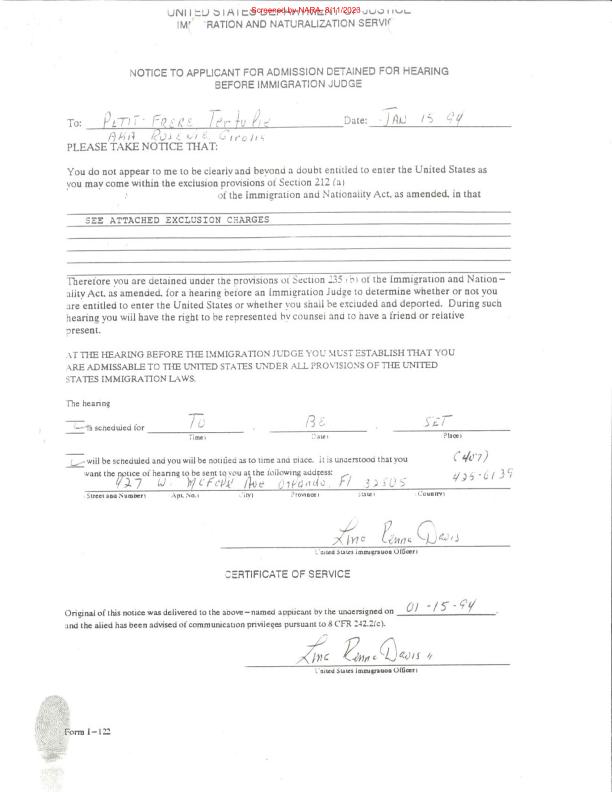 UNITED STATES DEPARTMENT OF JUSTICE
Screened by NARA, 8/11/2023
IMMIGRATION AND NATURALIZATION SERVICE
NOTICE TO APPLICANT FOR ADMISSION DETAINED FOR HEARING
BEFORE IMMIGRATION JUDGE
To: PETIT-FRERE Tertulie Date: JAN 15 94
AKA
PLEASE TAKE NOTICE THAT:
You do not appear to me to be clearly and beyond a doubt entitled to enter the United States as
you may come within the exclusion provisions of Section 212 (a)
of the Immigration and Nationality Act, as amended, in that
SEE ATTACHED EXCLUSION CHARGES
Therefore you are detained under the provisions of Section 235 (b) of the Immigration and Nation-
ality Act, as amended, for a hearing before an Immigration Judge to determine whether or not you
are entitled to enter the United States or whether you shall be excluded and deported. During such
hearing you will have the right to be represented by counsel and to have a friend or relative
present.
AT THE HEARING BEFORE THE IMMIGRATION JUDGE YOU MUST ESTABLISH THAT YOU
ARE ADMISSABLE TO THE UNITED STATES UNDER ALL PROVISIONS OF THE UNITED
STATES IMMIGRATION LAWS.
The hearing
is scheduled for TO , BE , SET
(Time) (Date) (Place)
will be scheduled and you will be notified as to time and place. It is understood that you (407)
want the notice of hearing to be sent to you at the following address: 425-6139
427 W. Ave Orlando, Fl 32805
(Street and Number) (Apt. No.) (City) (Province) (State) (Country)
Davis
(United States Immigration Officer)
CERTIFICATE OF SERVICE
Original of this notice was delivered to the above-named applicant by the undersigned on 01-15-94.
and the alied has been advised of communication privileges pursuant to 8 CFR 242.2(e).
Davis
(United States Immigration Officer)
Form I-122